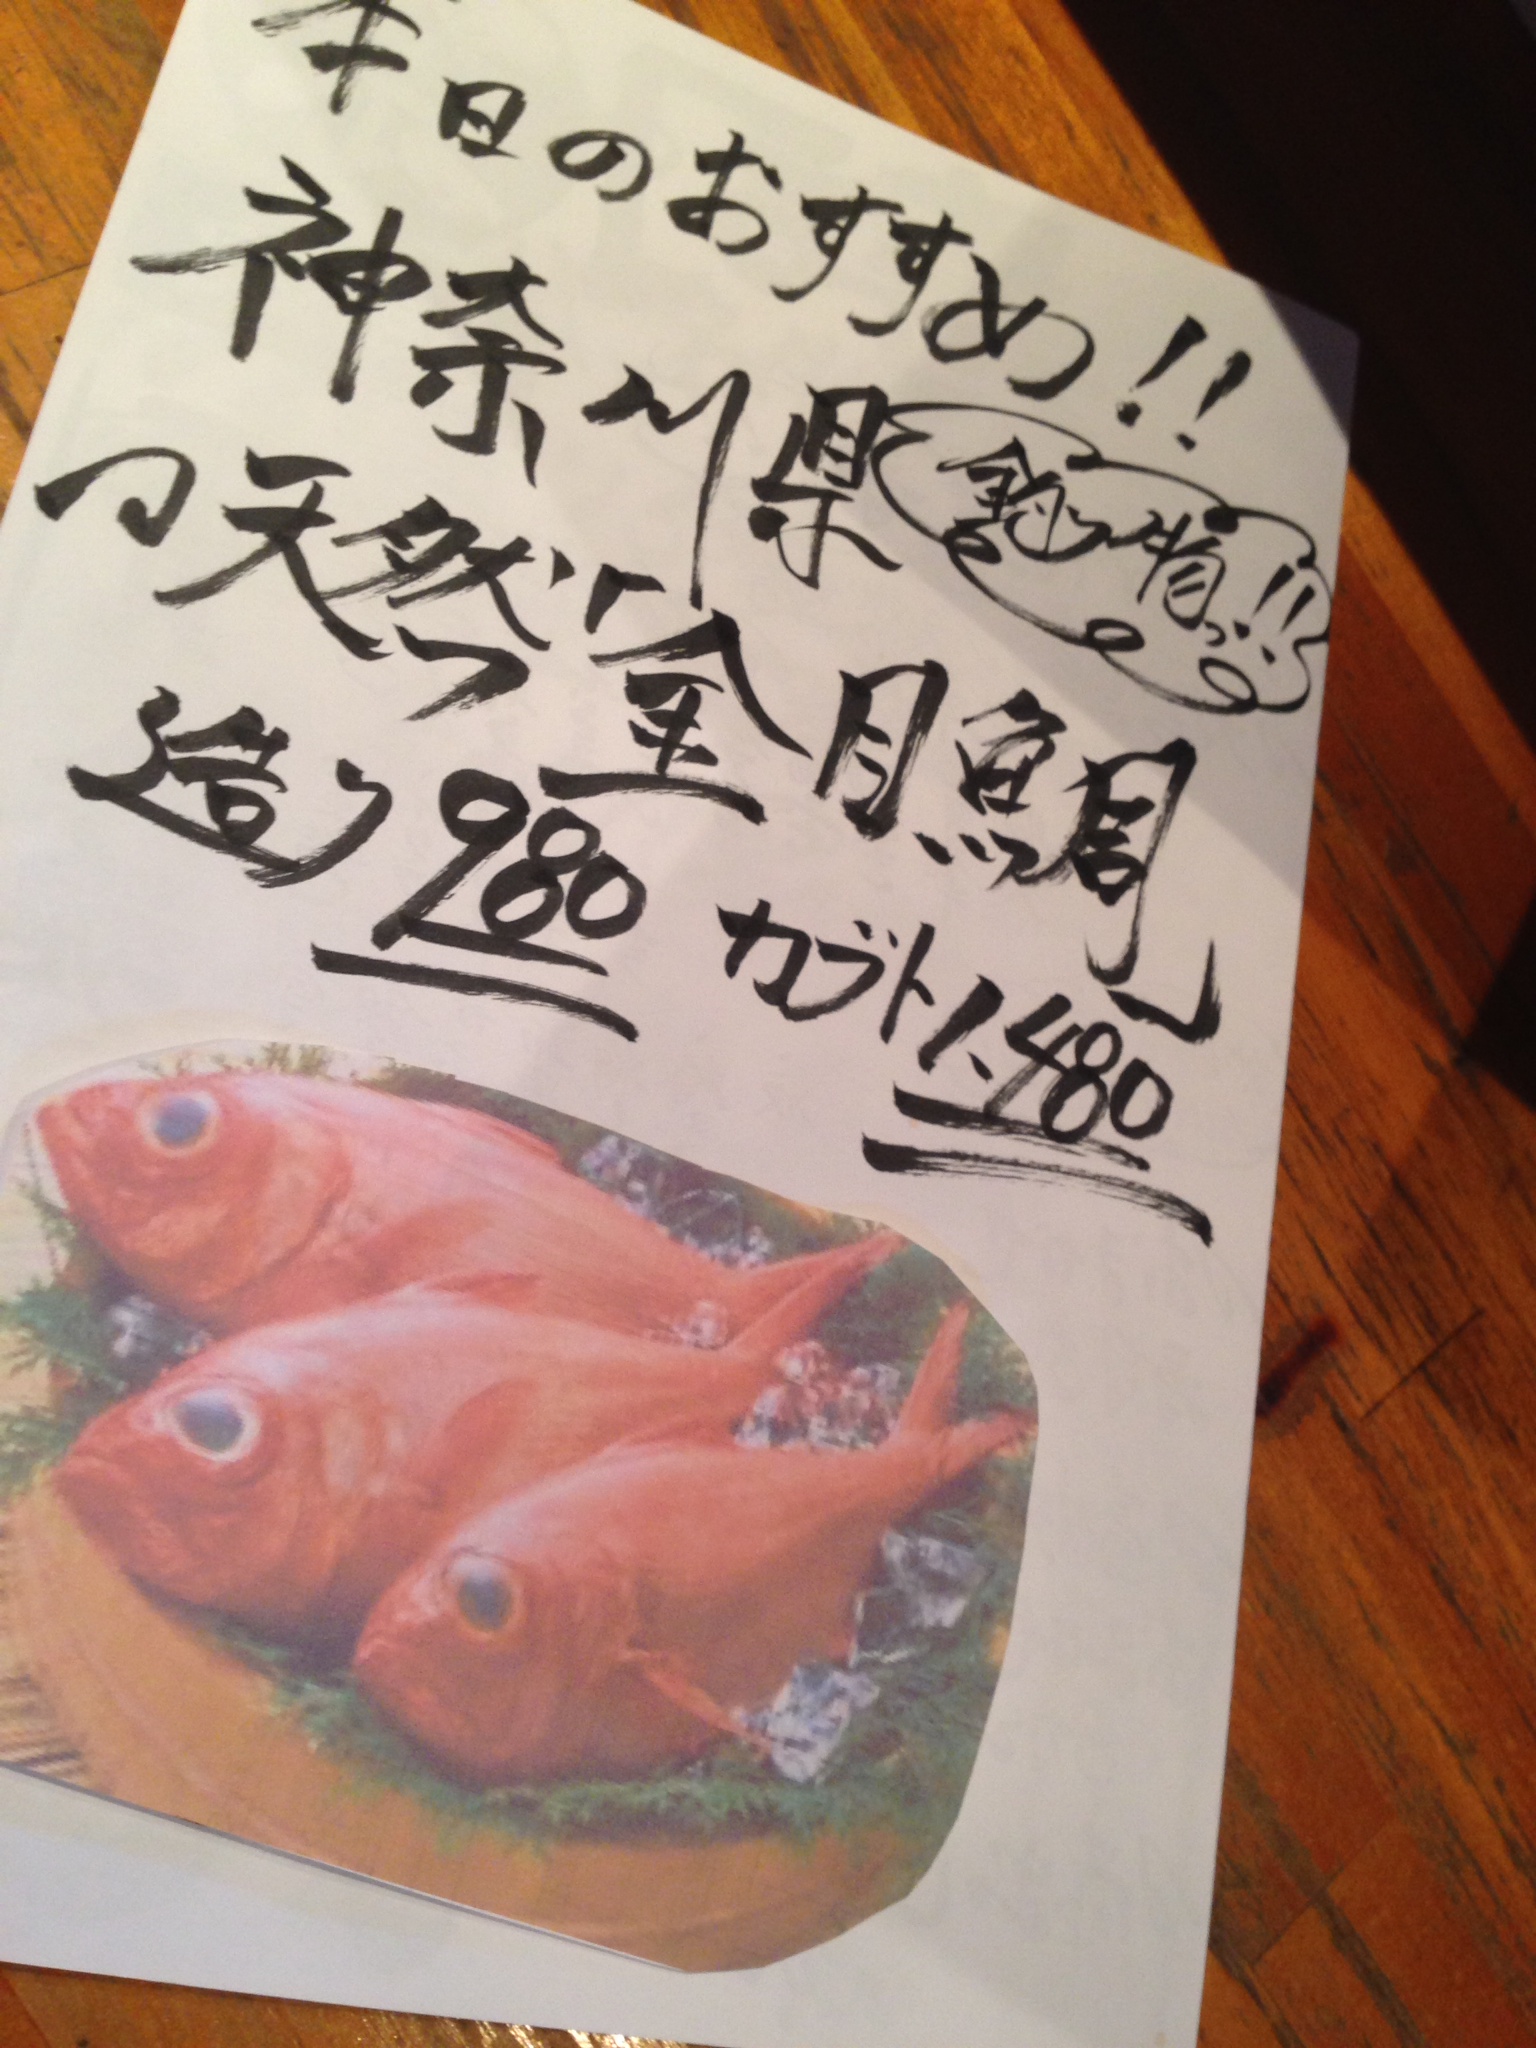 本日のおすすめ!!
神奈川県
釣り者っ!!
の天然金目鯛
造り980 カブト1.480